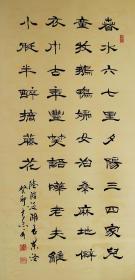 春水六七里夕陽三四家兒
童牧鵝鴨婦女治桑麻地僻
衣巾古年豐笑語嘩老夫維
小艇半醉摘藤花
陸游泛湖至東涇
癸卯